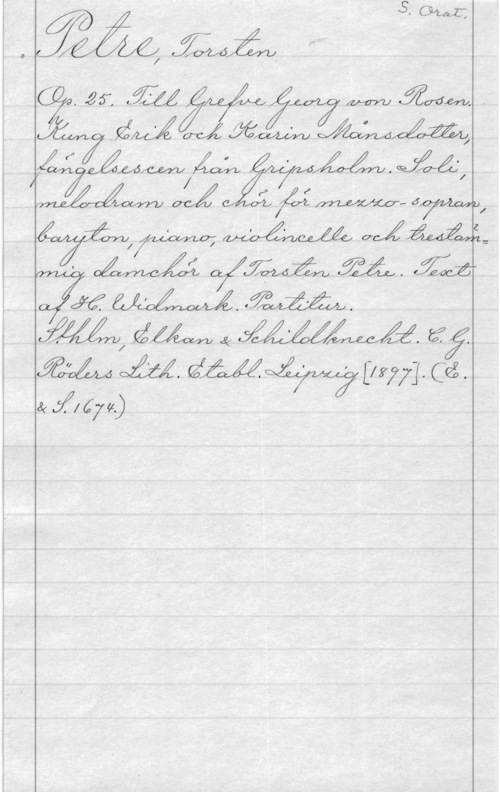 S. Orat.
Petre, Torsten
Op. 25. Till Grefve Georg von Rosen.
Kung Erik och Karin Månsdotter,
fängelsescen från Gripsholm. Soli,
melodram och chör för mezzo-sopran,
baryton, piano, violincelle och trestäm=
mig damchör af Torsten Petre. Text
af H. Widmark. Partitur.
Sthlm, Elkan & Schildknecht. C. G.
Röders Lith. Etabl. Leipzig [1897]. (E.
& S. 1674.)